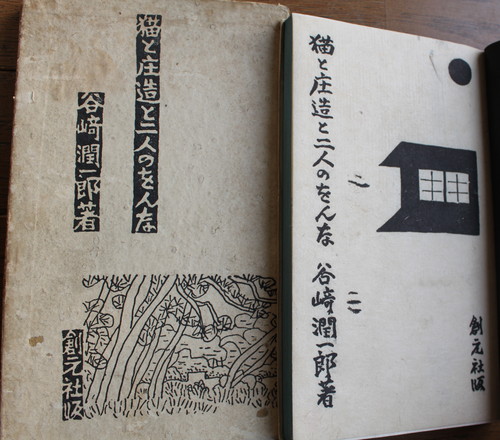 猫と庄造と二人のをんな
谷﨑潤一郎著
創元社版
猫と庄造と二人のをんな 谷﨑潤一郎著
創元社版